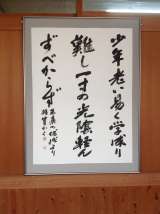 少年老い易く学成り
難し一寸の光陰軽ん
ずべからず